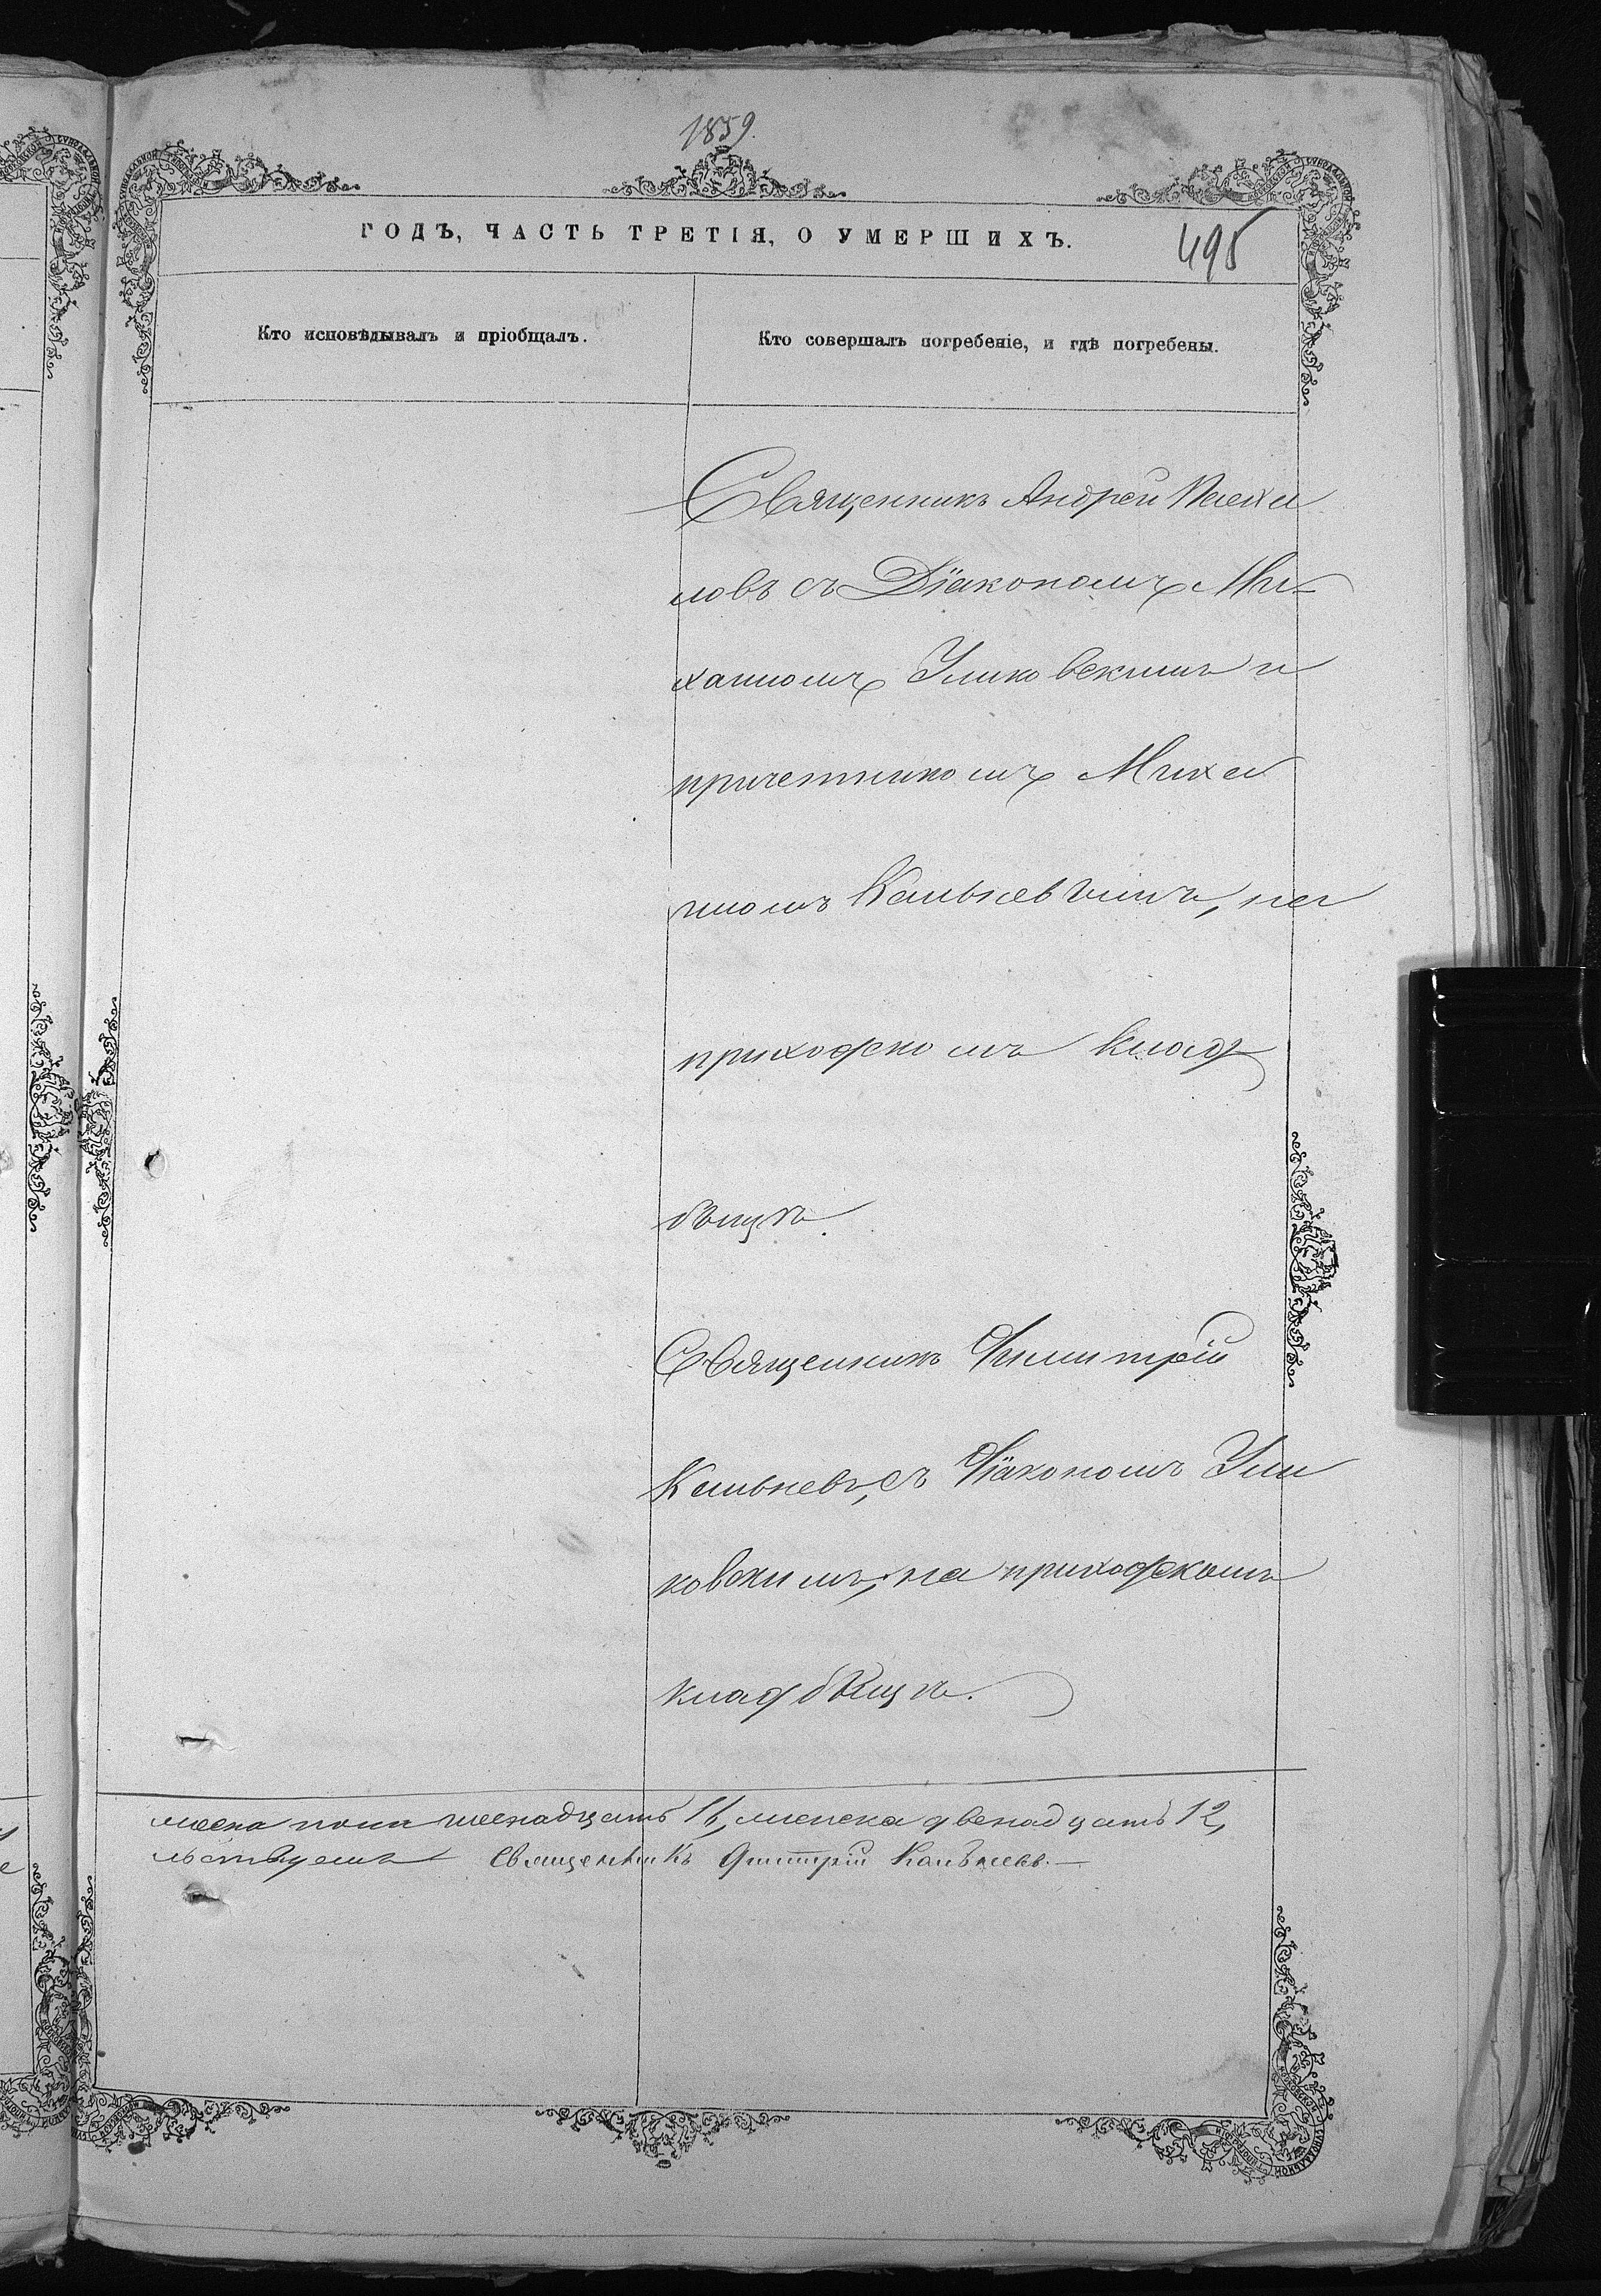 1859.
ГОДЪ, ЧАСТЬ ТРЕТІЯ, О УМЕРШИХЪ.
495
Кто исповѣдывалъ и пріобщалъ.
Кто совершалъ погребеніе, и гдѣ погребены.
Священникъ Андрей
ловъ съ Діакономъ Ми-
хаиломъ Уликовскимъ и
причетникомъ Михаи
ломъ на
приходскомъ клад
бищѣ.
Священникъ Димитрій
съ Діакономъ Ули
ковскимъ, на приходскомъ
кладбищѣ.
мужеска пола шеснадцать 16, женска двенадцать 12,
льствуемъ Священникъ Димитрій